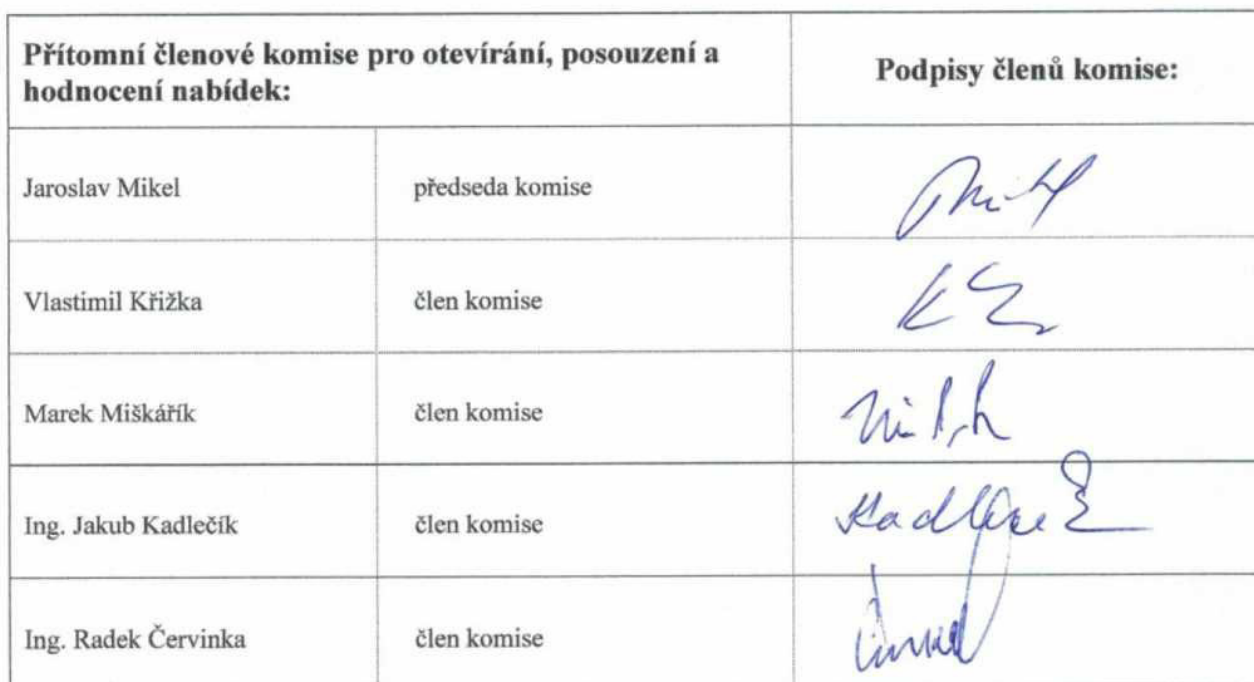 Přítomní členové komise pro otevírání, posouzení a
hodnocení nabídek:
Podpisy členů komise:
Jaroslav Mikel předseda komise
Vlastimil Křižka člen komise
Marek Miškářík člen komise
Ing. Jakub Kadlečík člen komise
Ing. Radek Červinka člen komise